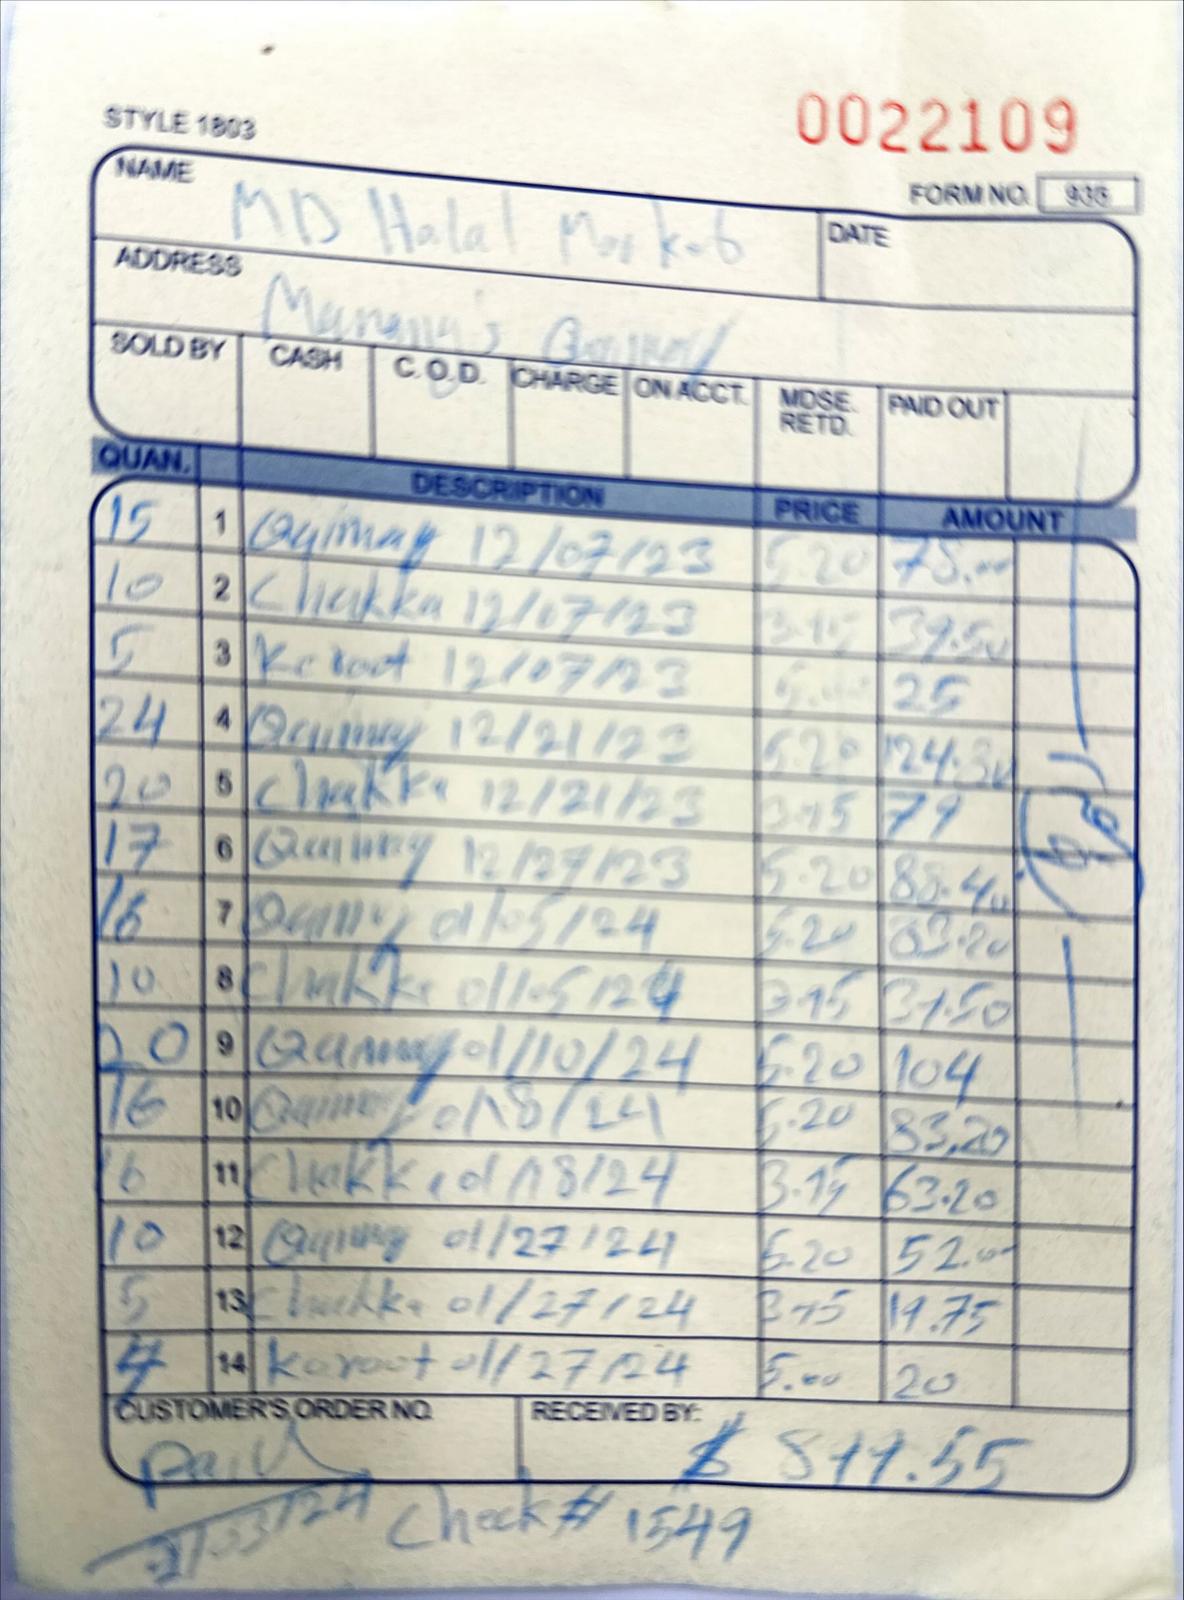 STYLE 1803
0022109
FORM NO. 938
NAME MD Halal Market
DATE
ADDRESS
SOLD BY CASH C.O.D. CHARGE ON ACCT. MDSE. RETD. PAID OUT
QUAN. DESCRIPTION PRICE AMOUNT
15 1 Qaimay 12/07/23 5.20 78.00
10 2 Chakka 12/07/23 39.50
5 3 Keroot 12/07/23 25
24 4 Qaimay 12/21/23 5.20 124.80
20 5 Chakka 12/21/23 3.95 79
17 6 Qaimay 12/27/23 5.20 88.40
16 7 Qaimay 01/05/24 5.20 83.20
10 8 Chakka 01/05/24 3.95 39.50
20 9 Qaimay 01/10/24 5.20 104
16 10 Qaimay 01/18/24 5.20 83.20
16 11 Chakka 01/18/24 3.95 63.20
10 12 Qaimay 01/27/24 5.20 52.00
5 13 Chakka 01/27/24 3.95 19.75
4 14 Karoot 01/27/24 5.00 20
CUSTOMER'S ORDER NO. RECEIVED BY:
Paid $ 899.55
Check # 1549